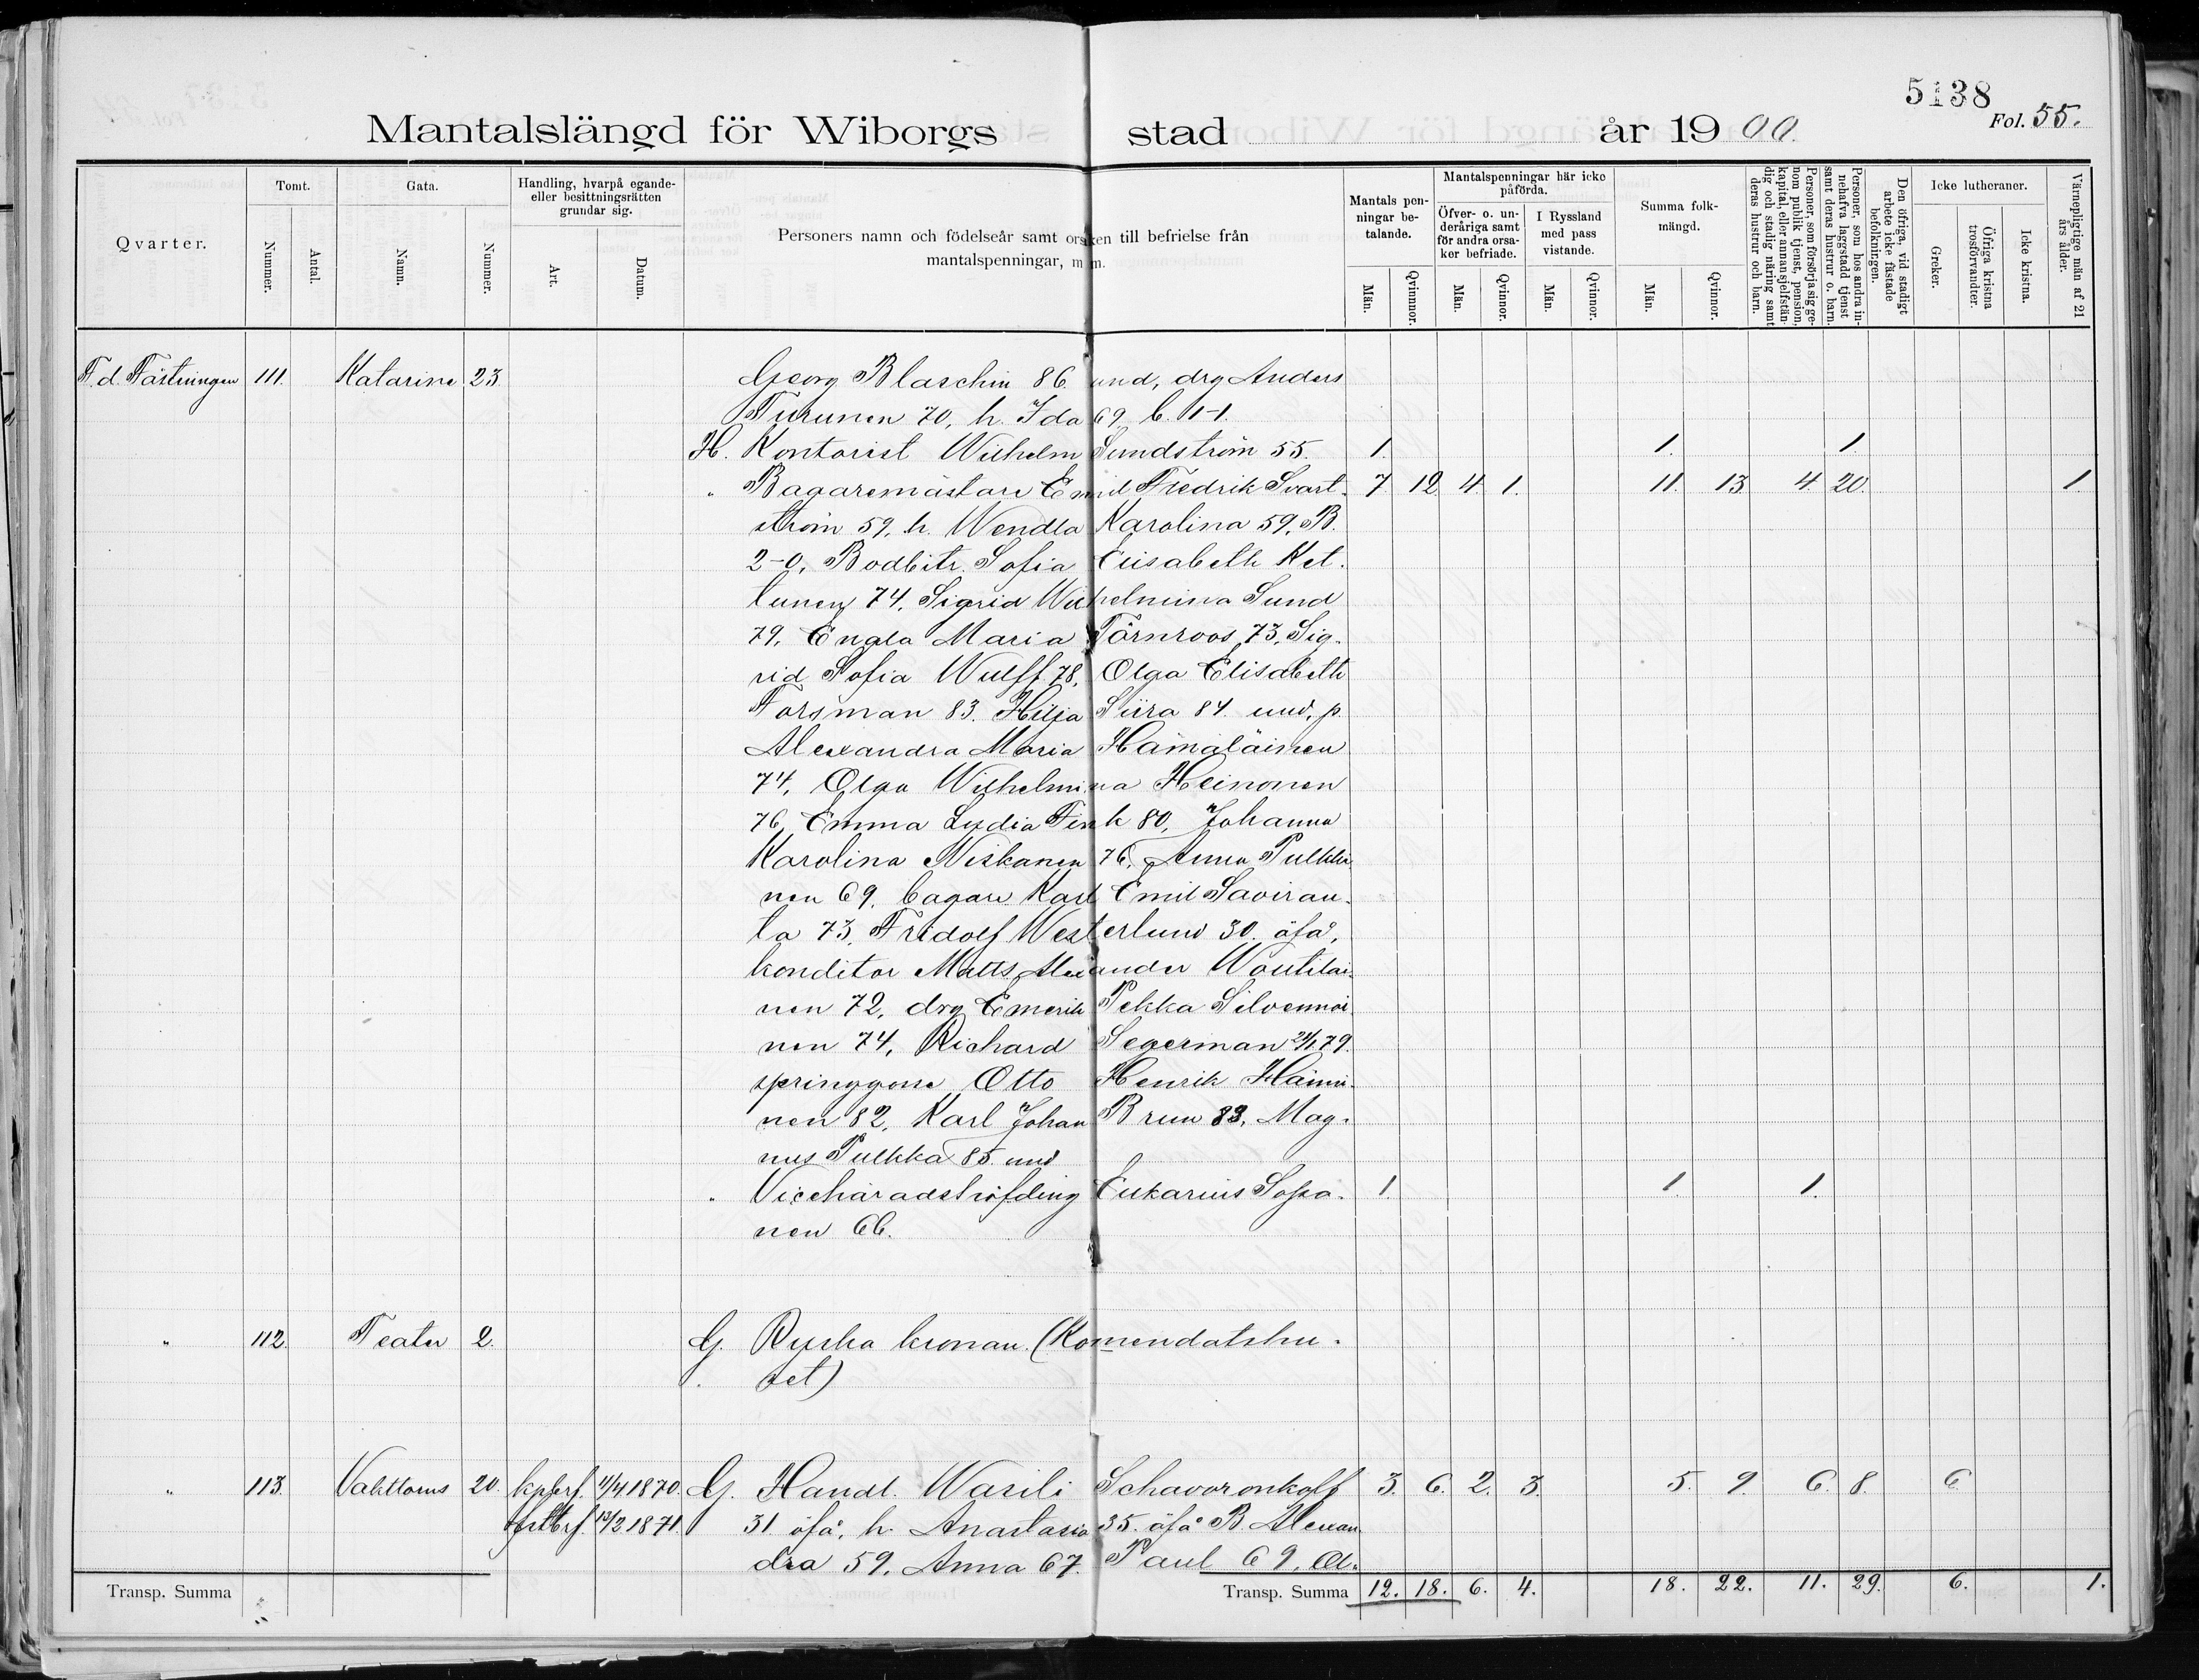 5138
Fol. 55.
Mantalslängd för Wiborgs stad år 1900.
Qvarter.
Tomt.
Nummer.
Antal.
Gata.
Namn.
Nummer.
Handling, hvarpå egande- eller besittningsrätten grundar sig.
Art.
Datum.
Personers namn och födelseår samt orsaken till befrielse från mantalspenningar, m. m.
Mantals penningar betalande.
Män.
Qvinnor.
Mantalspenningar här icke påförda.
Öfver- o. underåriga samt för andra orsaker befriade.
Män.
Qvinnor.
I Ryssland med pass vistande.
Män.
Qvinnor.
Summa folkmängd.
Män.
Qvinnor.
Personer, som försörja sig genom publik tjenst, pension, kapital, eller annan sjelfständig och stadig näring samt deras hustrur och barn.
Personer, som hos andra innehafva laggstadd tjenst samt deras hustrur o. barn.
Den öfriga, vid stadigt arbete icke fästade befolkningen.
Icke lutheraner.
Greker.
Öfriga kristna trosförvandter.
Icke kristna.
Värnepligtige män af 21 års ålder.
F. d. Fästningen 111. Katarine 23. Georg Blaschin 86 und, drg Anders
Turunen 70, h. Ida 69 b. 1-1.
H. Kontorist Wilhelm Sundström 55. 1. 1. 1.
" Bagaremästare Emil Fredrik Svart- 7 12. 4. 1. 11. 13. 4. 20. 1.
ström 59, h. Wendla Karolina 59, B.
2-0, Bodbitr. Sofia Elisabeth Ket-
tunen 74, Sigrid Wilhelmina Sund
79, Engla Maria Törnroos 73, Sig-
rid Sofia Wulff 78, Olga Elisabeth
Forsman 83. Hilja Siira 84 und, p.
Alexandra Maria Hämäläinen
74, Olga Wilhelmina Heinonen
76, Emma Lydia Fink 80, Johanna
Karolina Niskanen 76, Anna Pulkki-
nen 69, bagare Karl Emil Saviran-
ta 73, Fridolf Westerlund 30 öfå,
konditor Matts Alexander Woutilai-
nen 72, drg Emerik Pekka Silvennoi-
nen 74, Richard Segerman 21/1 79.
springgosse Otto Henrik Hänni-
nen 82, Karl Johan Brun 83, Mag-
nus Pulkka 85 und
" Vicehäradshöfding Eukarius Soppa- 1. 1. 1.
nen 66.
" 112. Teater 2. G. Ryska kronan. (Komendatshu-
set)
" 113. Vakttorns 20. kpbrf. 11/4 1870. G. Handl. Wasili Schavoronkoff 3. 6. 2. 3. 5. 9. 6. 8. 6.
fstbrf 13/2 1871. 31 öfå, h. Anastasia 35 öfå B. Alexan-
dra 59, Anna 67. Paul 69, Ol-
Transp. Summa
Transp. Summa 12. 18. 6. 4. 18. 22. 11. 29. 6. 1.